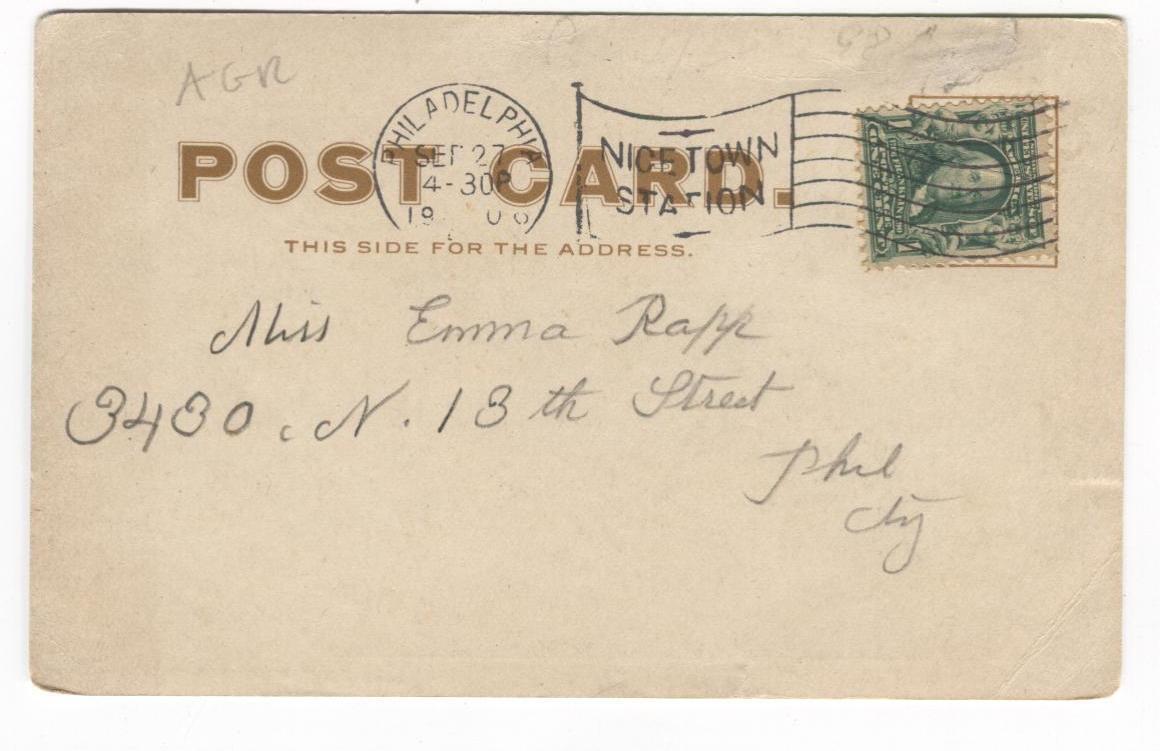 AGR
PHILADELPHIA
SEP 27
4-30P
19 06
NICETOWN
STATION
POST CARD.
THIS SIDE FOR THE ADDRESS.
Miss Emma Rapp
3430. N. 13th Street
Phil
City